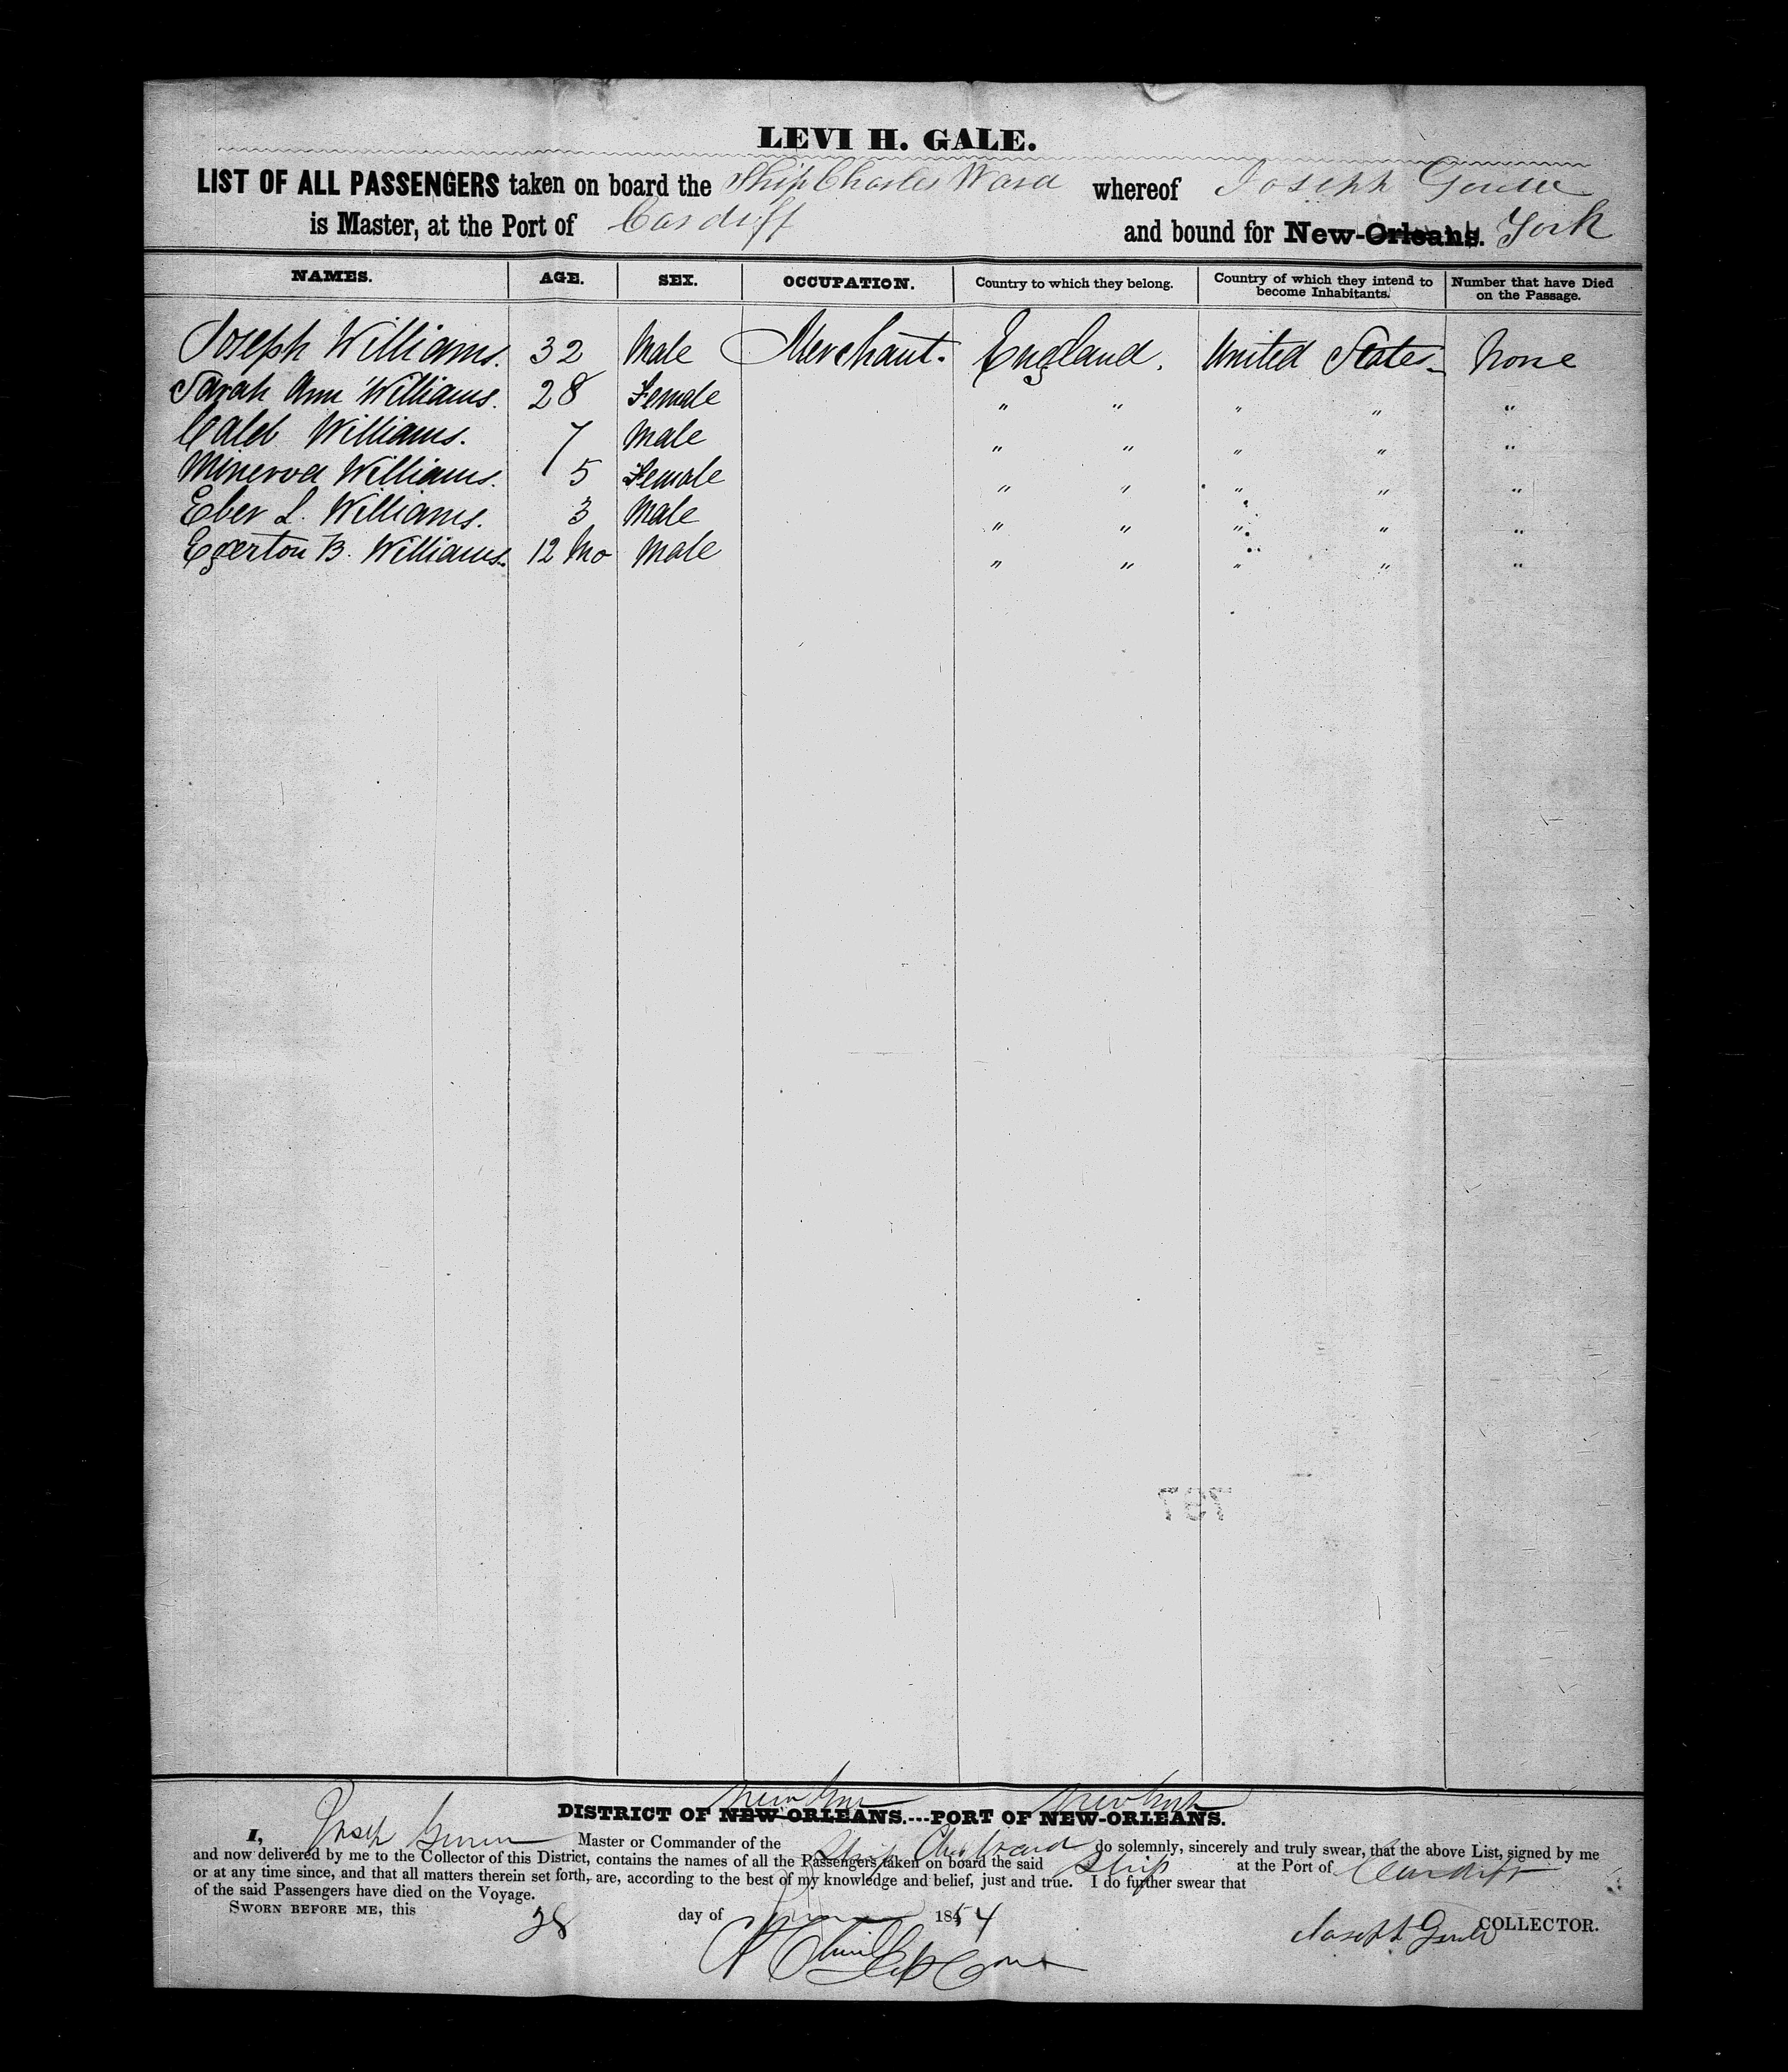 LEVI H. GALE.
LIST OF ALL PASSENGERS taken on board the Ship Charles Ward whereof Joseph
is Master, at the Port of Cardiff and bound for New-Orleans. York
NAMES. AGE. SEX. OCCUPATION. Country to which they belong. Country of which they intend to become Inhabitants. Number that have Died on the Passage.
Joseph Williams. 32 Male Merchant. England. United States None
Sarah Ann Williams. 28 Female " " " " "
Caleb Williams. 7 Male " " " " "
Minerva Williams. 5 Female " " " " "
Eber L. Williams. 3 Male " " " " "
Egerton B. Williams. 12 Mo Male " " " " "
797
New York New York
DISTRICT OF NEW-ORLEANS.---PORT OF NEW-ORLEANS.
I, Joseph Master or Commander of the Ship Chas Ward do solemnly, sincerely and truly swear, that the above List, signed by me
and now delivered by me to the Collector of this District, contains the names of all the Passengers taken on board the said Ship at the Port of Cardiff
or at any time since, and that all matters therein set forth, are, according to the best of my knowledge and belief, just and true. I do further swear that
of the said Passengers have died on the Voyage.
SWORN BEFORE ME, this 28 day of 1854
Joseph COLLECTOR.